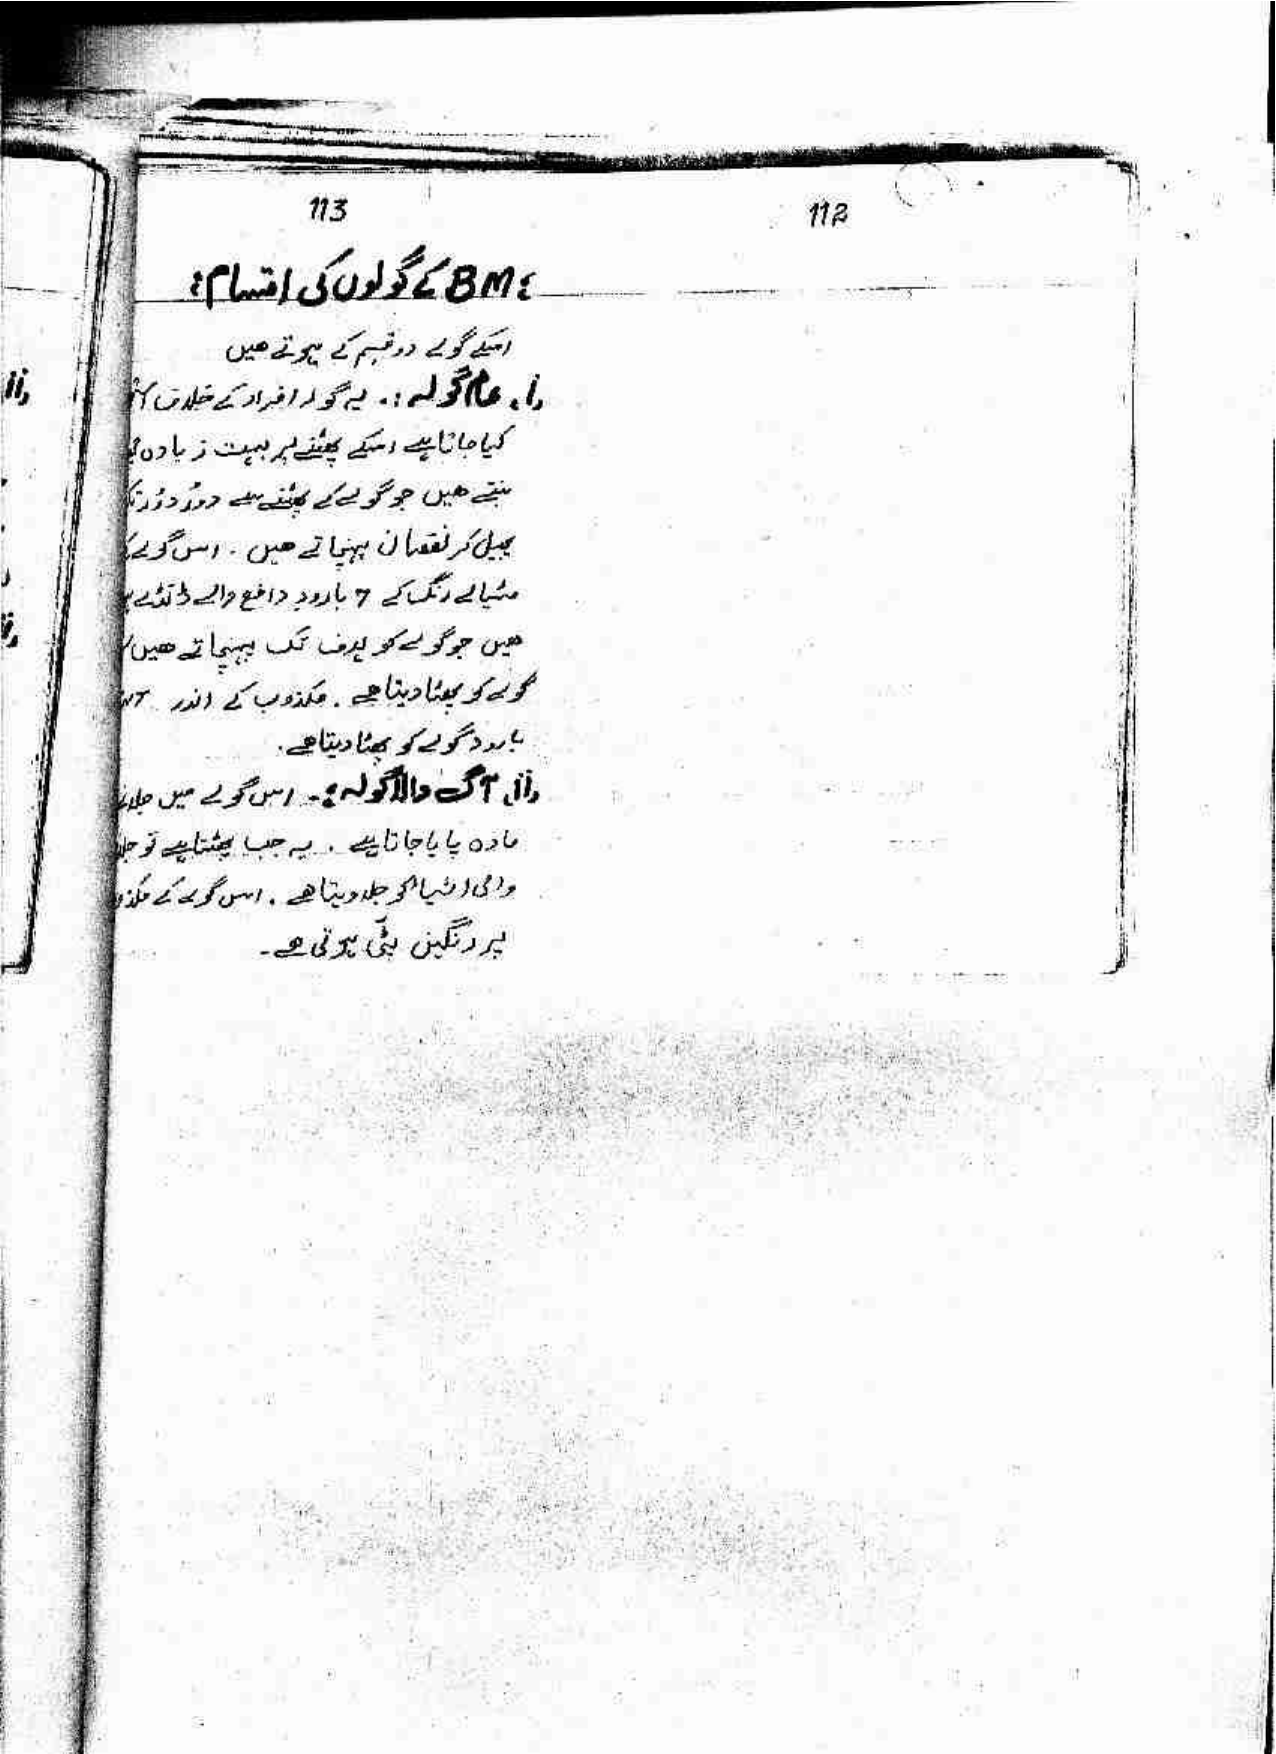 112
113
BM کے گولوں کی اقسام:
اسکے گولے دو قسم کے ہوتے ھیں
(i). عام گولہ:۔ یہ گولہ افراد کے خلاف
کیا جاتا ہے اسکے پھٹنے پر بہت زیادہ
بنتے ھیں جو گولے کے پھٹنے سے دور دور
پھیل کر نقصان پہنچاتے ھیں . اس گولے
مٹیالے رنگ کے 7 بارود دافع والے ڈنڈے
ھیں جو گولے کو ہدف تک پہنچاتے ھیں
گولے کو پھٹا دیتا ھے . مکذوب کے اندر
بارود گولے کو پھٹا دیتا ھے.
(ii). آگ والا گولہ:۔ اس گولے میں
مادہ پایا جاتا ہے . یہ جب پھٹتا ہے تو
والی اشیا کو جلا دیتا ھے . اس گولے کے
پر رنگین پٹی ہوتی ھے۔
(ii)